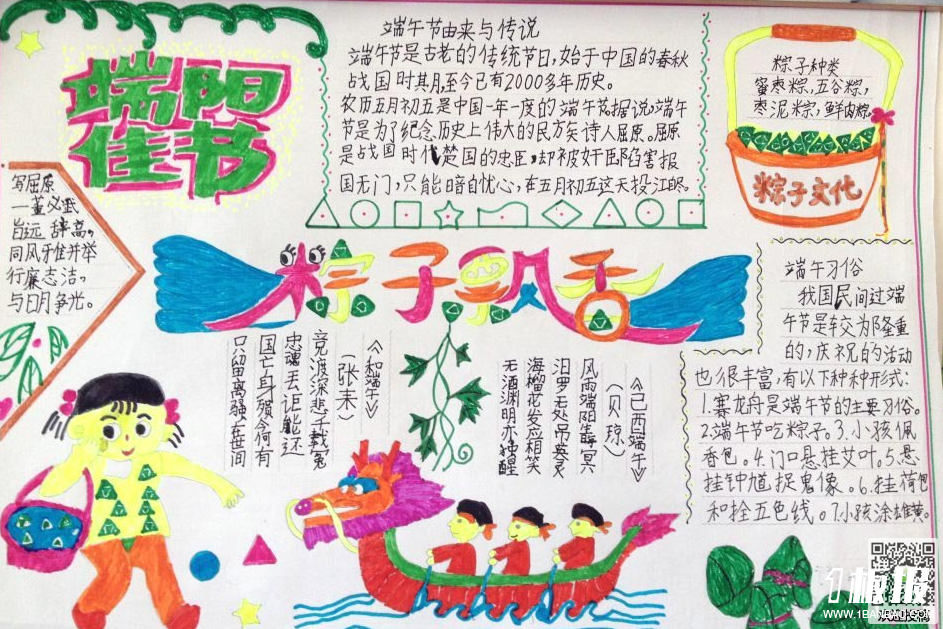 端阳
佳节
端午节由来与传说
端午节是古老的传统节日,始于中国的春秋
战国时其月,至今已有2000多年历史。
农历五月初五是中国一年一度的端午节,据说,端午
节是为了纪念历史上伟大的民族诗人屈原。屈原
是战国时代楚国的忠臣,却被奸臣陷害报
国无门,只能暗自忧心,在五月初五这天投江
粽子种类
蜜枣粽,五谷粽,
枣泥粽,鲜肉粽
粽子文化
写屈原
旨远 辞高。
同风雅并举
行廉志洁。
与日月争光。
粽子飘香
端午习俗
我国民间过端
午节是较为隆重
的,庆祝的活动
也很丰富,有以下种种形式:
1.赛龙舟是端午节的主要习俗。
2.端午节吃粽子。3.小孩佩
香包。4.门口悬挂艾叶。5.悬
挂钟馗捉鬼像。6.挂荷包
和拴五色线。7.小孩涂雄黄。
《己酉端午》
(贝琼)
风雨端阳生晦冥
汨罗无处吊英灵
海榴花发应相笑
无酒渊明亦独醒
《和端午》
(张耒)
竞渡深悲千载冤
忠魂一去讵能还
国亡身殒今何有
只留离骚在世间
1板报
WWW.1BANBAO.COM
欢迎投稿